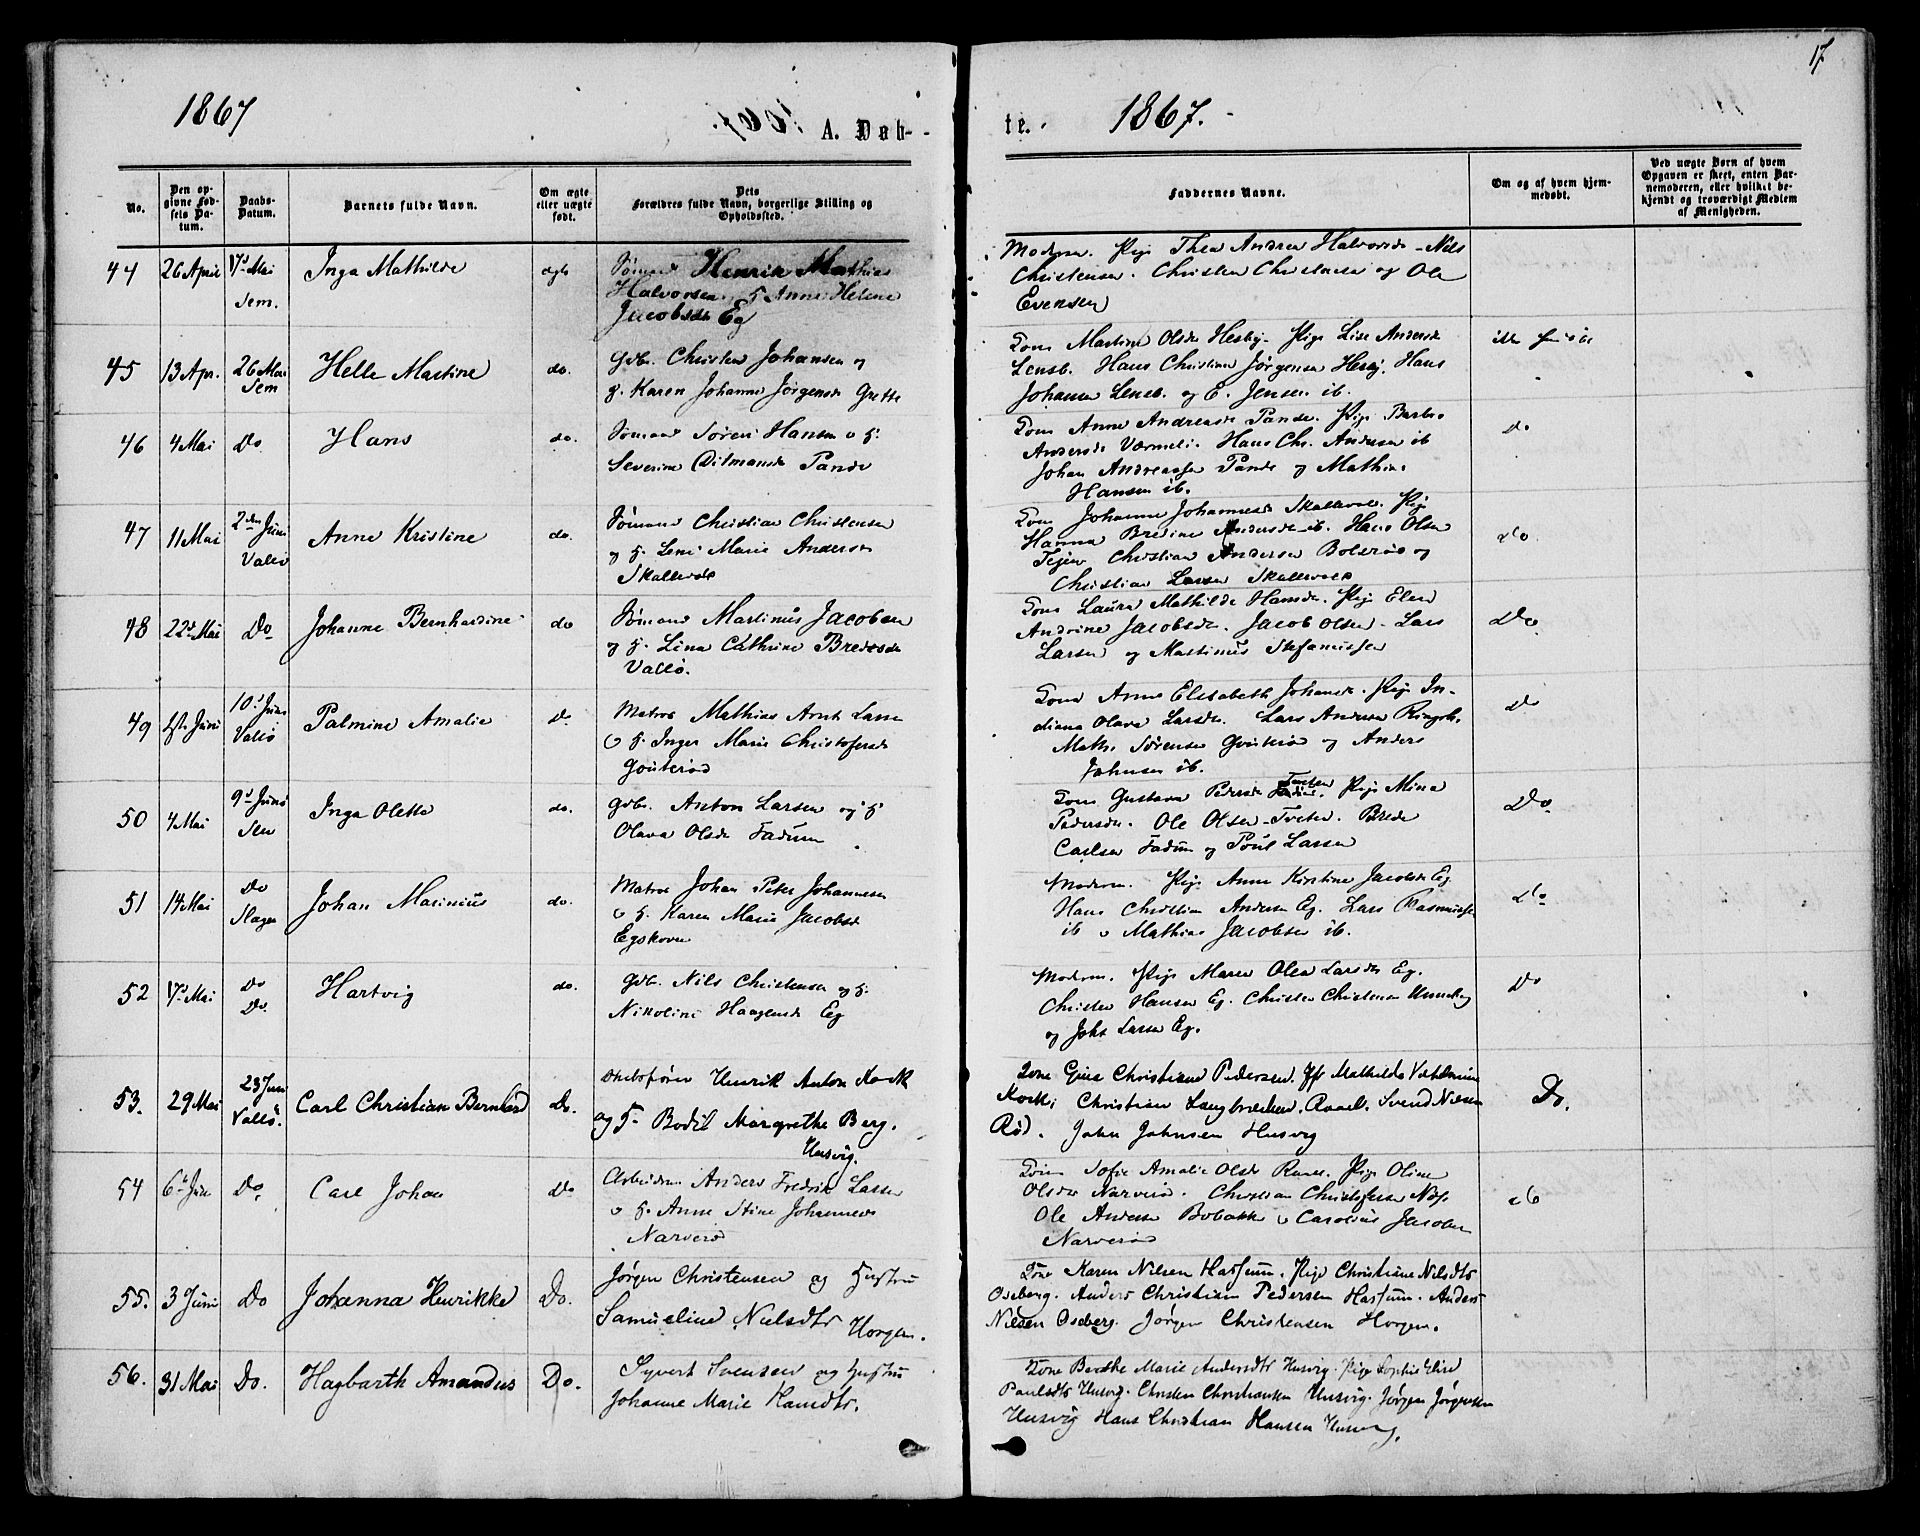 17
1867
A. Døb-
te.
1867.
No.
Den op-
givne Fød-
sels Da-
tum.
Daabs-
Datum.
Barnets fulde Navn.
Om ægte
eller uægte
født.
Dets
Forældres fulde Navn, borgerlige Stilling og
Opholdssted.
Faddernes Navne.
Om og af hvem hjem-
medøbt.
Ved uægte Børn af hvem
Opgaven er skeet, enten Bar-
nemoderen, eller hvilket be-
kjendt og troværdigt Medlem
af Menigheden.
44
26 April
Mai
Sem.
Inga Mathilde
Sømand Henrik Mathias
Halvorsen
Anne Helene
Jacobsdr Eg
Pige Thea Andrea Halvorsdr - Nils
Christensen. Christen Christensen og Ole
Evensen
45
13 Apr.
26 Mai
Sem
Helle Martine
do.
Gdb. Christen Johansen og
H. Karen Johanne Jørgensdr Grette
Kone Martine Olsdr Hesby. Pige Lise Andersdr
Lensb. Hans Christian Jørgensen Hesby. Hans
Johansen Lensb. og E. Jensen ib.
46
4 Mai
Do
Hans
do.
Sømand Søren Hansen o H.
Severine Ditmansdr Pande
Kone Anne Andreasdr Pande. Pige Barbr.
Andersdr Værmeli. Hans Chr. Andersen ib
Johan Andreassen Pande og Mathias
Hansen ib.
Do
47
11 Mai
2den Juni
Valø
Anne Kristine
do.
Sømand Christian Christensen
og H. Leni Marie Andersdr
Skallevold
Kone Johanne Johannesdr Skallevold. Pige
Hanna Bredine Andersdr ib. Hans Olsen
Christian Andersen Bolærne og
Christian Larsen Skallevold
do
48
22d Mai
Do
Johanne Bernhardine
do
Sømand Martinus Jacobsen
og H. Lina Cathrine Bredesdr
Valø.
Kone Laura Mathilde Hansdr. Pige Elen
Andrine Jacobsdr. Jacob Olsen - Lars
Larsen og Martinus Stefanussen
Do
49
1ste Juni
10d Juni
Valø
Palmine Amalie
Do.
Matros Mathias Arnt Larsen
o H. Inger Marie Christofersdr
Gouterød
Kone Anne Elisabeth Johansdr. Pige In-
diana Olava Larsdr. Lars Andersen Ringsh.
Math. Sørensen Gouterød og Anders
Johnsen ib.
Do
50
4 Mai
9d Juni
Sem
Inga Olette
do.
Gdb. Anton Larsen og H
Olava Olsdr Fadum
Kone Gustava Pedersdr Tveten. Pige Mina
Pedersdr. Ole Olsen Tveten. Brede
Carlsen Fadum og Poul Larsen
Do
51
14 Mai
Do
Slagen
Johan Marinius
do.
Matros Johan Peter Johannesen
o H. Karen Marie Jacobsdr
Egskoven
Moderen. Pige Anne Kirstine Jacobsdr Eg
Hans Christian Andersen Eg. Lars Rasmussen
ib o Mathias Jacobsen ib.
do
52
17d Mai
Do
Do.
Hartvig
do.
Gdb. Nils Christensen og H.
Nikoline Haagensdr Eg
Moderen. Pige Maren Olea Larsdr Eg.
Christen Hansen Eg. Christen Christensen Unneberg
og Johs Larsen Eg.
Do
53.
29 Mai
23 Juni
Valø.
Carl Christian Bernhard
Do.
Skibsfører Henrik Anton Kock
og H. Bodil Margrethe Berg.
Husvig.
Kone Gina Christiane Pedersen. Mathilde Vilhelmine
Kock; Christian Langbrækken. Ravel. Svend Nilsen
Rød. John Johnsen Husvig
Do.
54
6d Juni
Do.
Carl Johan
Do
Arbeidsm Anders Fredrik Larsen
o H. Anne Stine Johannesdr
Narverød
Kone Sofie Amalie Olsdr. Pige Oline
Olsdr Narverød. Christian Christofersen Næs.
Ole Andersen Bobakke o Carolius Jacobsen
Narverød
do
55.
3 Juni
Do
Johanna Henrikke
Do.
Jørgen Christensen og Hustru
Samueline Nielsdtr Horgen.
Kone Karen Nilsen Hassum. Pige Christiane Nilsdtr
Oseberg. Anders Christian Pedersen Hassum. Anders
Nilsen Oseberg. Jørgen Christensen Horgen.
56.
31 Mai
Do.
Hagbarth Amandus
Do.
Syvert Svensen og Hustru
Johanne Marie Hansdtr.
Kone Berthe Marie Andersdtr Husvig. Pige Sophie Elise
Paulsdtr Husvig. Christen Christiansen Husvig. Jørgen Jørgensen
Husvig Hans Christian Hansen Husvig.